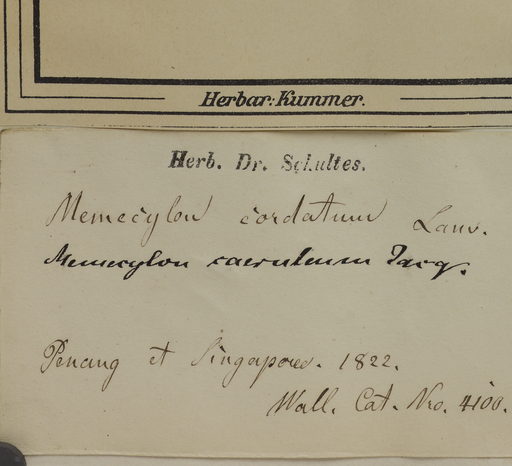 Herbar: Kummer.
Herb. Dr. Schultes.
Memecylon cordatum Lam.
Memecylon caeruleum Jacq.
Penang et Singapore. 1822.
Wall. Cat. Nro. 4100.